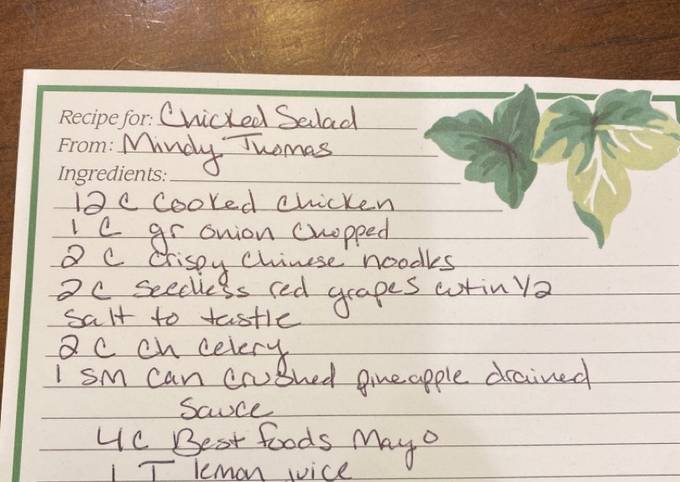 Recipe for: Chicked Salad
From: Mindy Thomas
Ingredients:
12 c cooked chicken
1 c gr onion chopped
2 c crispy chinese noodles
2 c seedless red grapes cut in 1/2
salt to tastle
2 c ch celery
1 sm can crushed pineapple drained
Sauce
4 c Best foods Mayo
1 T lemon juice